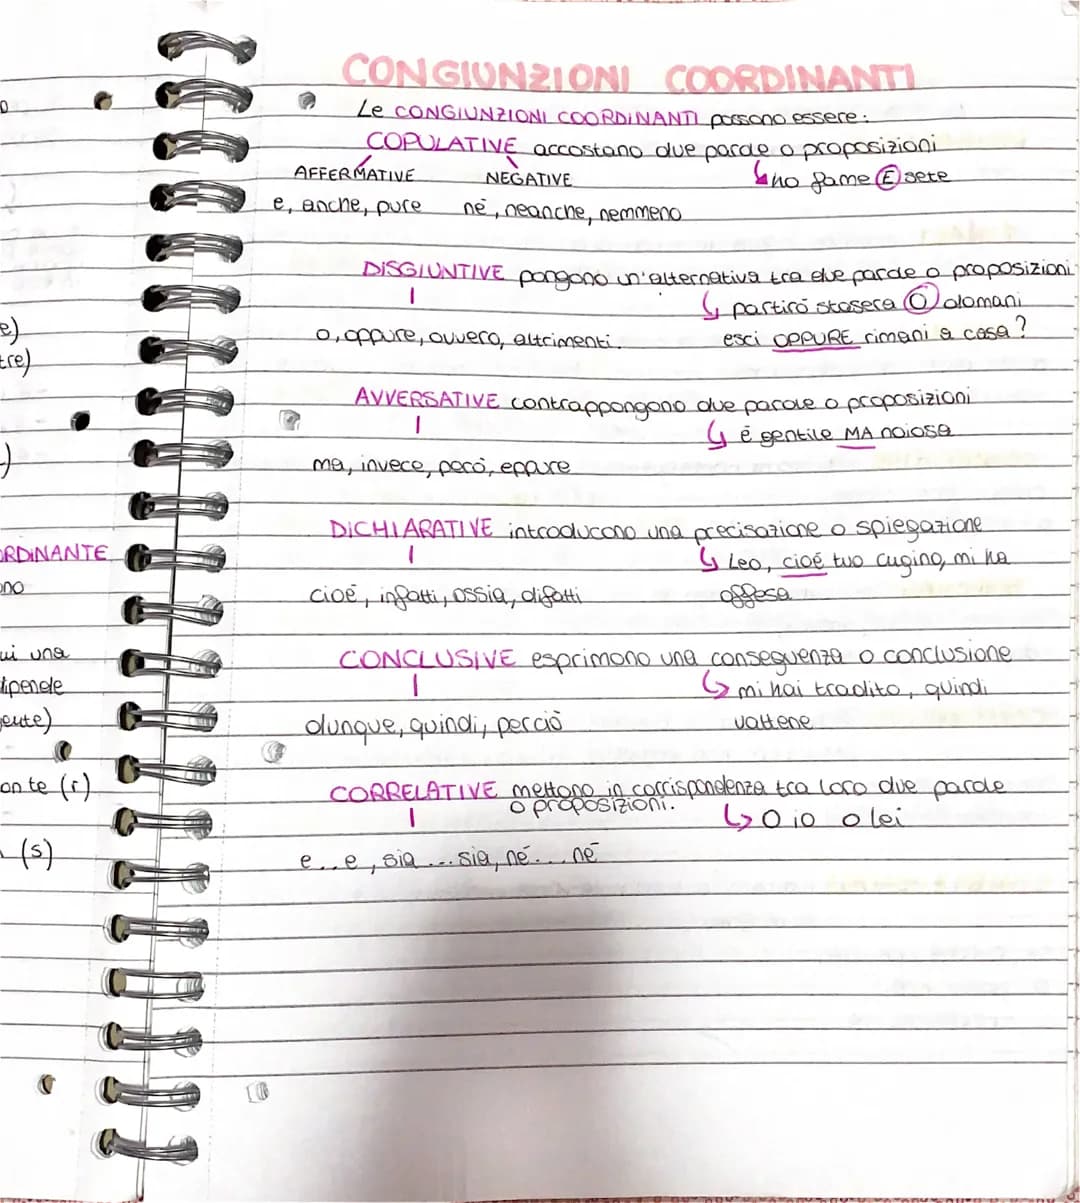 CONGIUNZIONI COORDINANTI
Le CONGIUNZIONI COORDINANTI possono essere:
COPULATIVE accostano due parole o proposizioni
AFFERMATIVE NEGATIVE ↳ho fame E sete
e, anche, pure né, neanche, nemmeno
DISGIUNTIVE pongono un'alternativa tra due parole o proposizioni
↳ partirò stasera O domani
o, oppure, ovvero, altrimenti. esci OPPURE rimani a casa?
AVVERSATIVE contrappongono due parole o proposizioni
↳ é gentile MA noiosa
ma, invece, però, eppure
DICHIARATIVE introducono una precisazione o spiegazione
↳ Leo, cioé tuo cugino, mi ha
cioé, infatti, ossia, difatti offesa
CONCLUSIVE esprimono una conseguenza o conclusione
↳ mi hai tradito, quindi
dunque, quindi, perciò vattene
CORRELATIVE mettono in corrispondenza tra loro due parole
o proposizioni. ↳ O io o lei
e...e, sia...sia, né... né
e)
tre)
ORDINANTE
ono
ui una
dipende
onte (r)
(s)